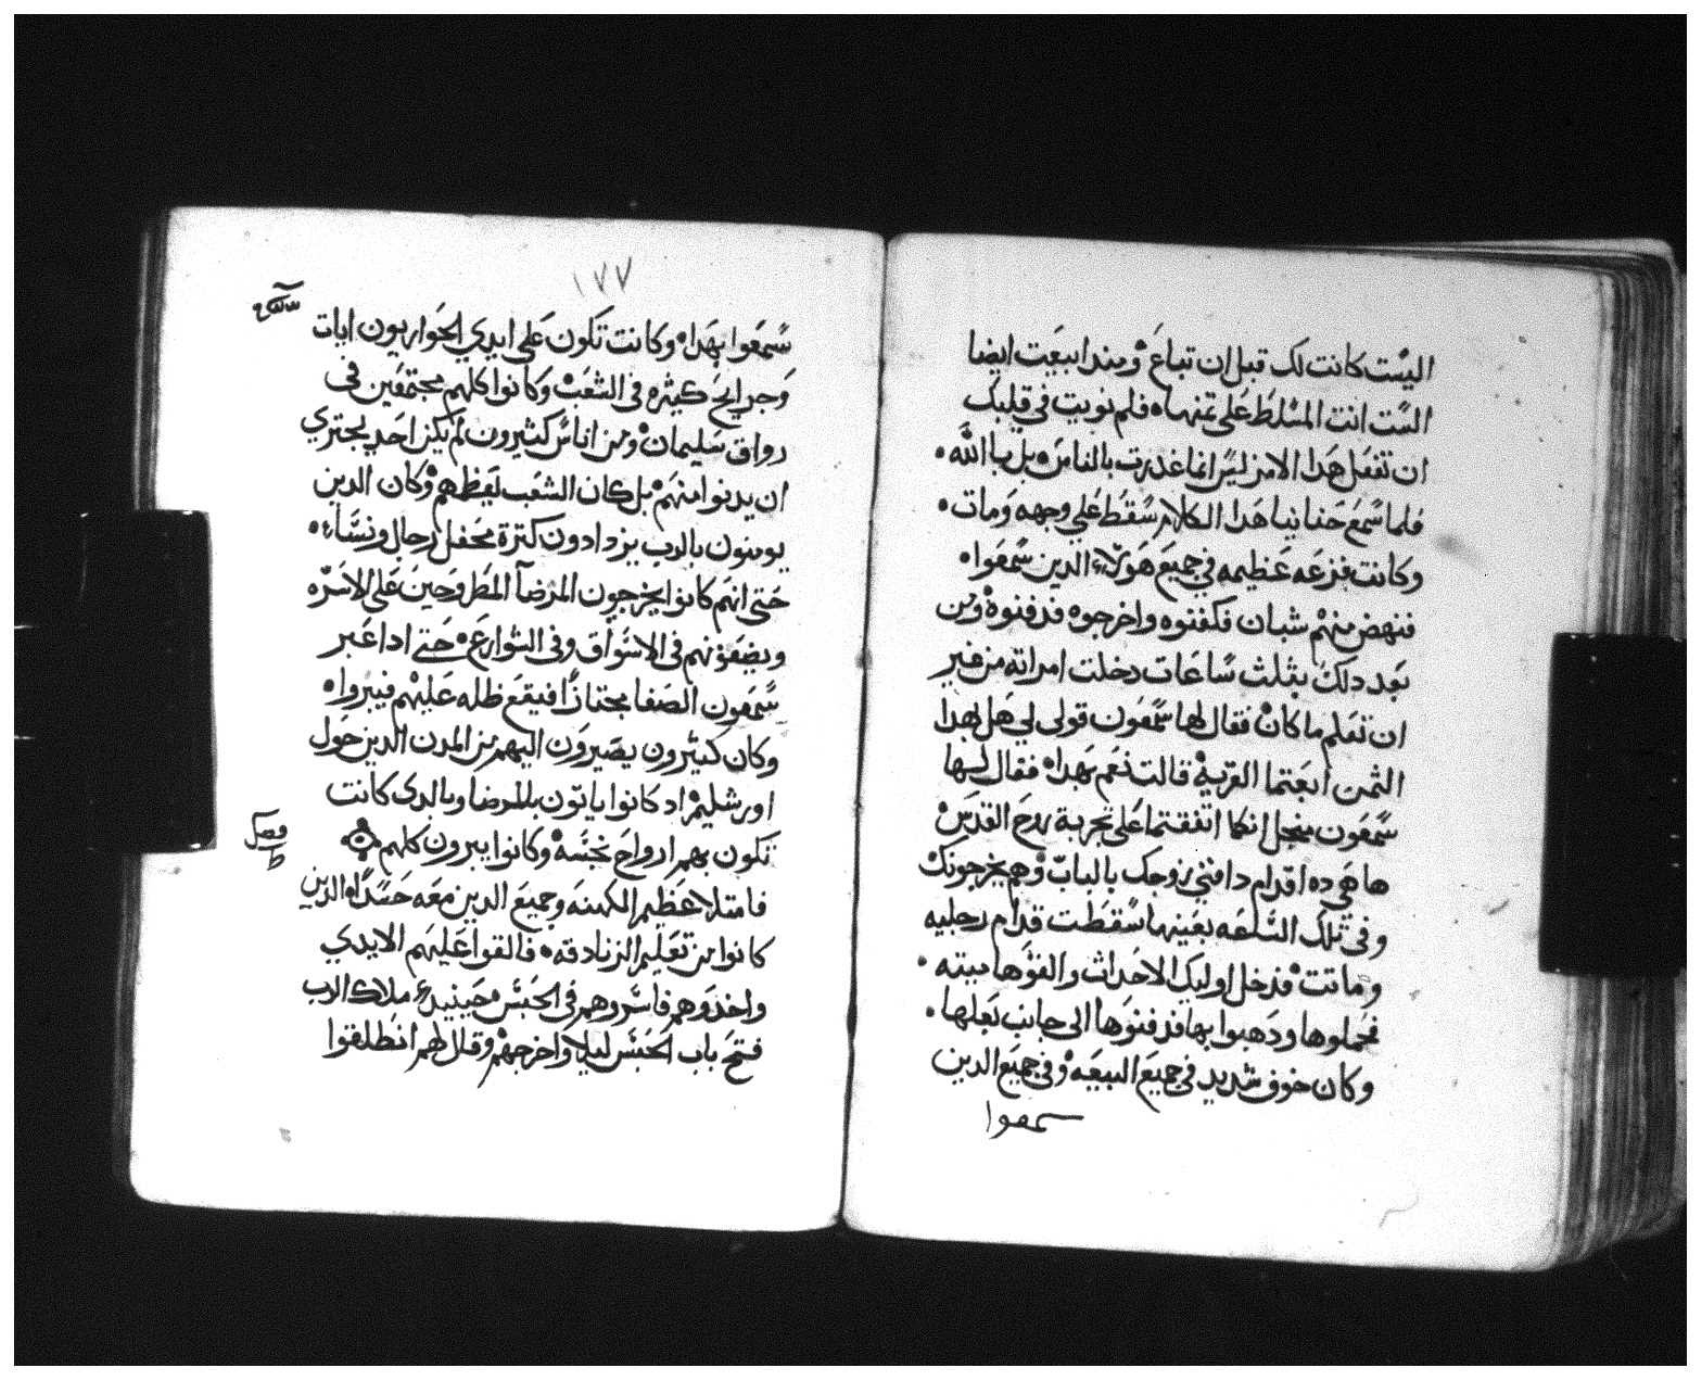 اليست كانت لك قبل ان تباع ومندا ابيعت ايضا
الست انت المسلط على تمنها فلم نويت في قلبك
ان تفعل هدا الامر ليس انما غدرت بالناس بل بالله
فلما سمع حنانيا هدا الكلام سقط علي وجهه ومات
وكانت فزعه عظيمه في جميع هولاء الدين سمعوا
فنهض منهم شبان فكفنوه واخرجوه فدفنوه ومن
بعد دلك بثلث ساعات دخلت امراته من غير
ان تعلم ما كان فقال لها سمعون قولي لي هل بهدا
الثمن ابعتما القرية قالت نعم بهدا فقال لها
سمعون منجل انكما اتفقتما على تجربة روح القدس
ها هي ده اقدام دافني زوجك بالباب وهم يخرجونك
وفي تلك الساعه بعينها سقطت قدام رجليه
وماتت فدخل اوليك الاحداث والفوها ميته
فحملوها ودهبوا بها فدفنوها الى جانب بعلها
وكان خوف شديد في جميع البيعه وفي جميع الدين
سمعوا
١٧٧
سمعوا بهدا وكانت تكون على ايدي الحواريون ايات
وجرايح كثيره في الشعب وكانوا كلهم مجتمعين في
رواق سليمان ومن اناس كثيرون لم يكن احد يجتري
ان يدنوا منهم بل كان الشعب يعظمهم وكان الدين
يومنون بالرب يزدادون كترة محفل رجال ونساء
حتى انهم كانوا يخرجون المرضآ المطروحين على الاسره
ويضعونهم في الاسواق وفي الشوارع حتى ادا عبر
سمعون الصفا مجتازا فيقع ظله عليهم فيبروا
وكان كثيرون يصيرون اليهم من المدن الدين حول
اورشليم اد كانوا ياتون بالمرضا وبالدى كانت
تكون بهم ارواح نجسه وكانوا يبرون كلهم
فصل
فامتلا عظيم الكهنه وجميع الدين معه حسدا الدين
كانوا من تعليم الزنادقه فالقوا عليهم الايدي
واخدوهم فاسروهم في الحبس حينيد ملاك الرب
فتح باب الحبس ليلا واخرجهم وقال لهم انطلقوا